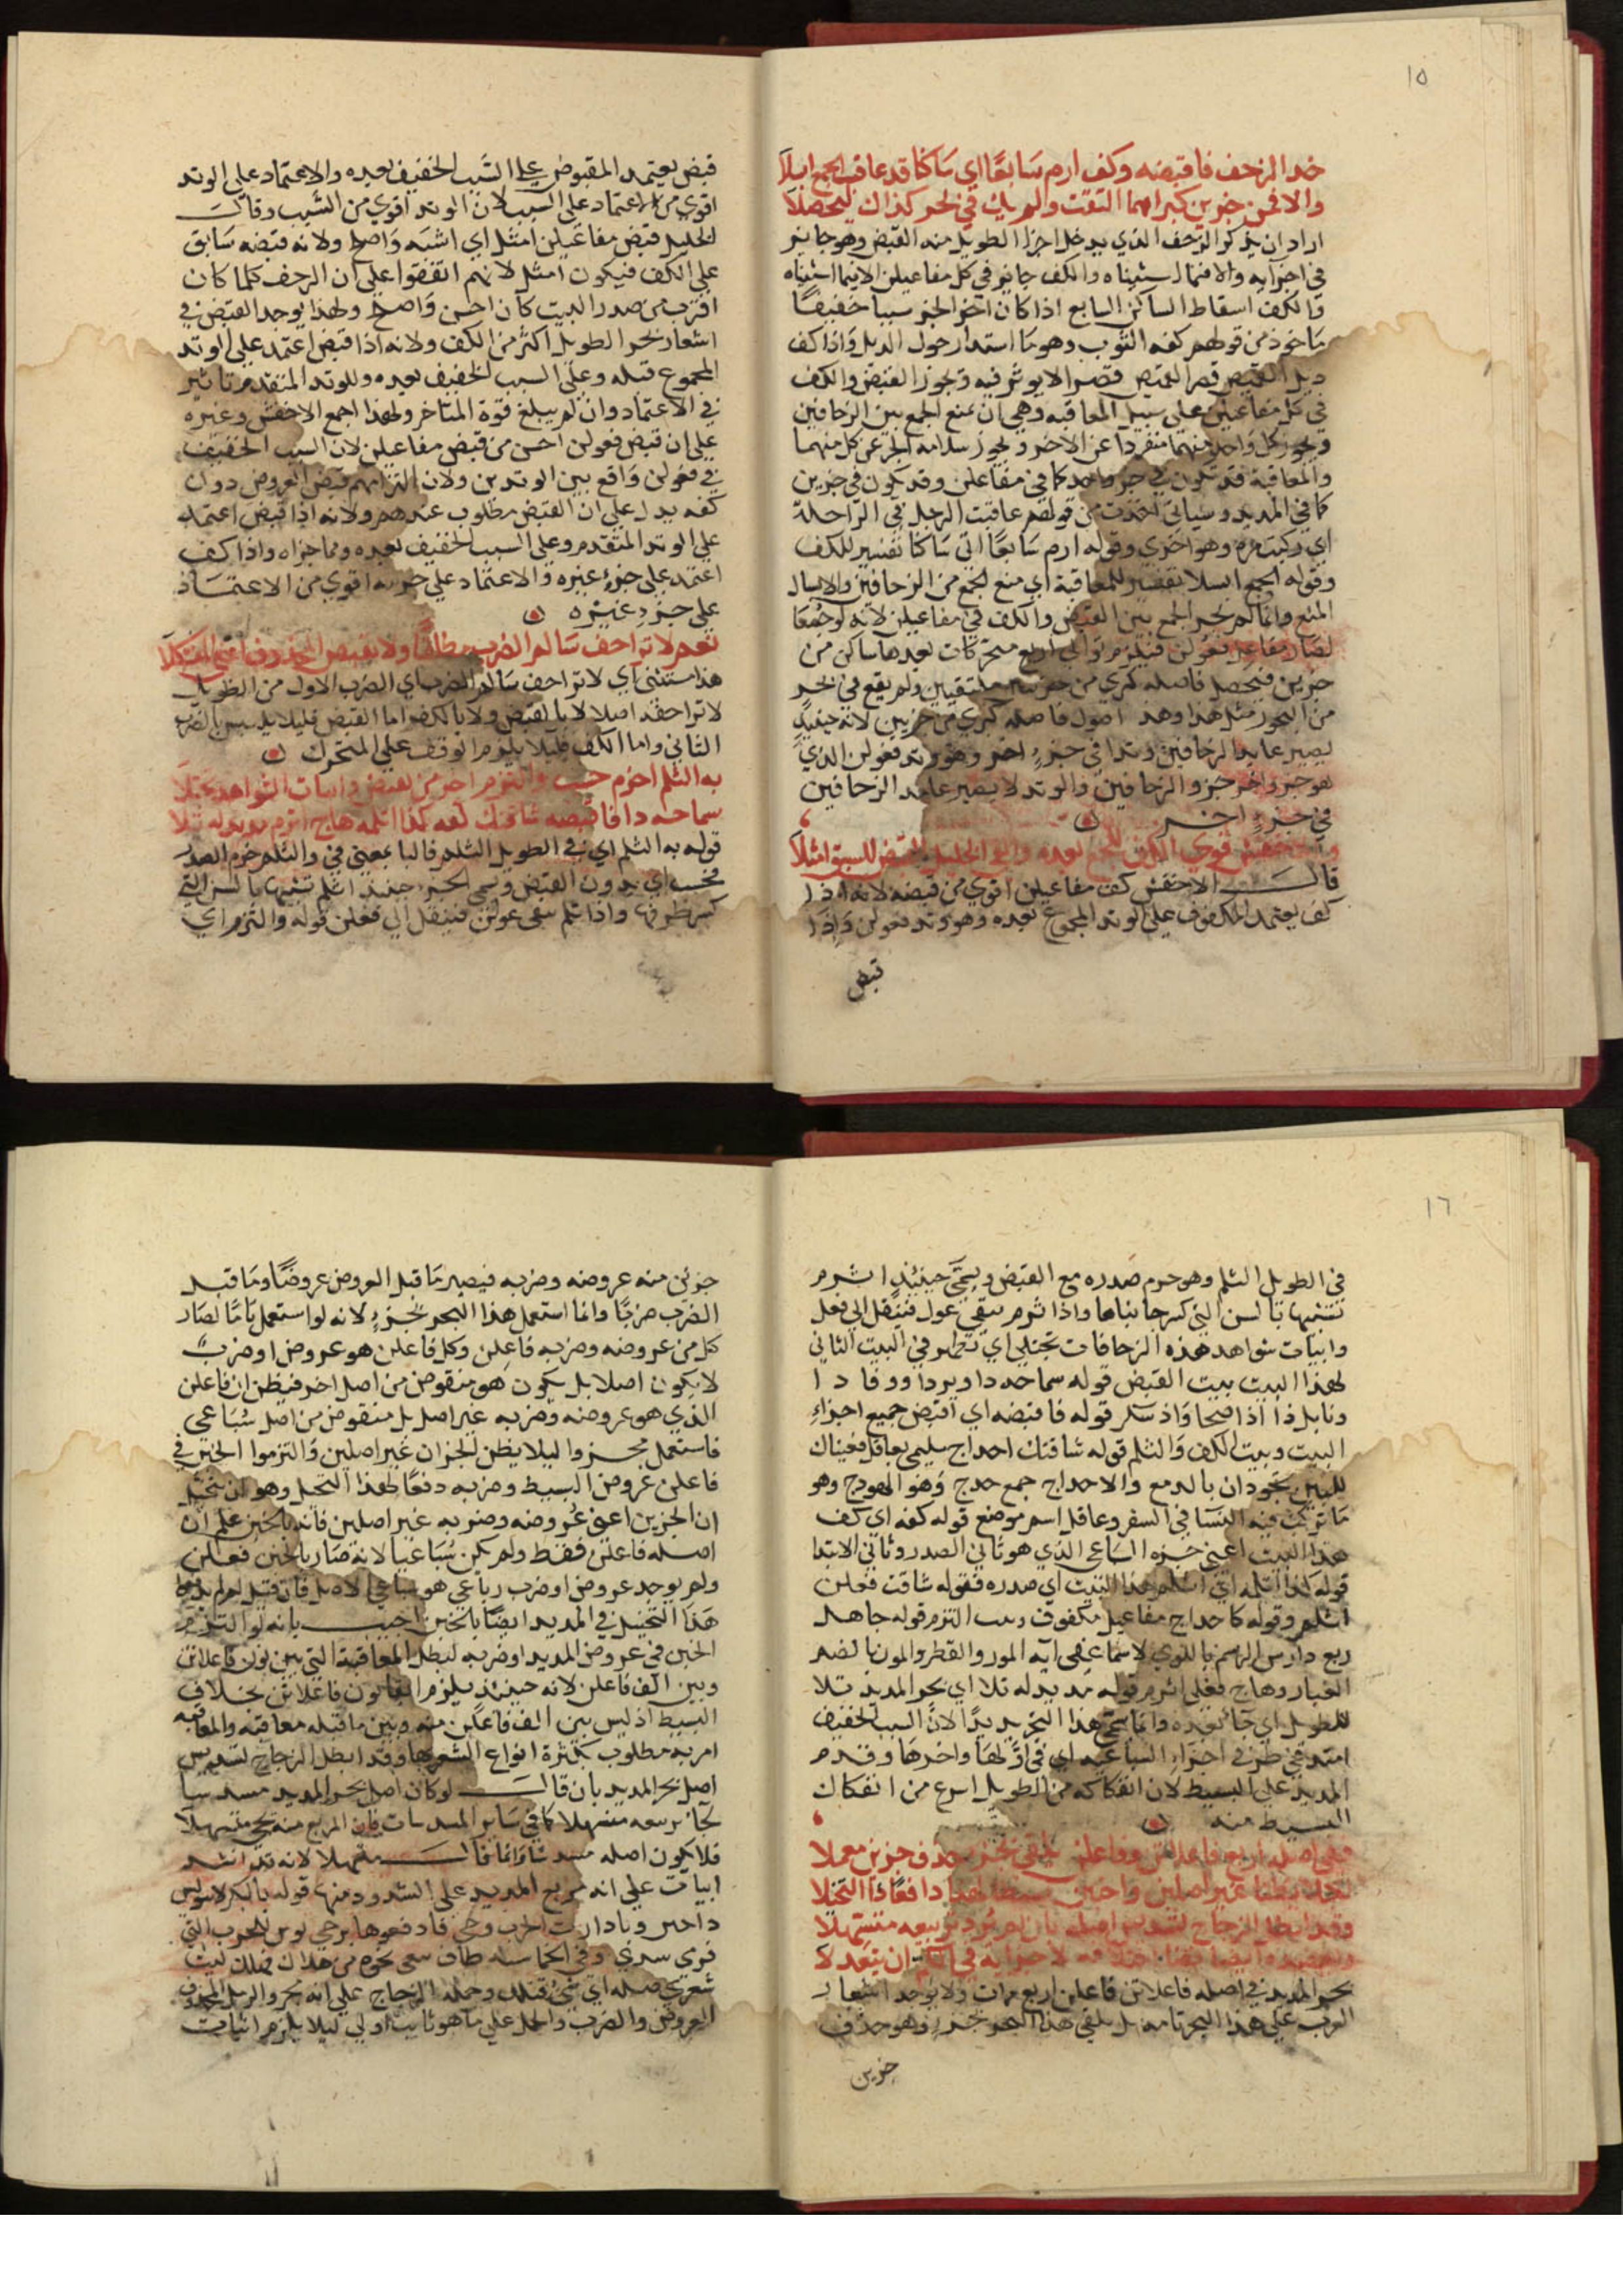 ١٥
خذ الزحف فاقبضه وكف ارم سابعًا اي ساكنا قد عاقب الجمع ابسلا
والا فمن جزوين كبراهما التقت ولم يك في بحر كذاك ليحصلا
اراد ان يذكر الزحف الذي يدخل اجزا الطويل منه القبض وهو جايز
في اجزايه والا فيما استثناه والكف جايز في كل مفاعيلن الا فيما استثناه
والكف اسقاط الساكن السابع اذا كان اخر الجز سببا خفيفًا
ماخوذ من قولهم كفه الثوب وهو ما استدار حول الذيل واذا كف
ذيل القميص قصر القميص قصرا لا يوثر فيه ويجوز القبض والكف
في كل مفاعيلن على سبيل المعاقبة وهي ان يمنع الجمع بين الزحافين
ويجوز كل واحد منهما منفردا عن الاخر ويجوز سلامة الجزء عن كل منهما
والمعاقبة قد تكون في جزء واحد كما في مفاعلن وقد تكون في جزين
كما في المديد وسياتي اخذت من قولهم عاقبت الرجل في الراحلة
اي ركبت مرة وهو اخري وقوله ارم سابعًا اي ساكنا تفسير للكف
وقوله الجمع ابسلا تفسير للمعاقبة اي منع الجمع من الزحافين والابسال
المنع وانما لم يجز الجمع بين القبض والكف في مفاعيلن لانه لو جمعا
لصار مفاعل فعولن فيلزم توالي اربع متحركات بعدها ساكن من
جزين فيحصل فاصلة كبري من جزين ملتقيين ولم يقع في بحر
من البحور مثل هذا وهذا اصول فاصلة كبري من جزين لانه حينيذ
يصير عايد الزحافين وتدا في جزء اخر وهو وتد فعولن الذي
هو جزو اخر جزو الزحافين والوتد لا يصير عامد الزحافين
في جزء اخر
والاخفش قوي الكف للجمع بعده والخليل القبض للسبق امثلا
قال الاخفش كف مفاعيلن اقوي من قبضه لانه اذا
كف يعتمد المكفوف على الوتد المجموع بعده وهو وتد فعولن واذا
قبض
قبض يعتمد المقبوض على السبب الخفيف بعده والاعتماد على الوتد
اقوي من الاعتماد على السبب لان الوتد اقوي من السبب وقال
الخليل قبض مفاعيلن امثل اي اشبه واصلح ولانه قبضه سابق
على الكف فيكون امثل لانهم اتفقوا على ان الزحف كلما كان
اقرب من صدر البيت كان احسن واصلح ولهذا يوجد القبض في
اشعار بحر الطويل اكثر من الكف ولانه اذا قبض اعتمد على الوتد
المجموع قبله وعلى السبب الخفيف بعده وللوتد المتقدم تاثير
في الاعتماد وان لم يبلغ قوة المتاخر ولهذا اجمع الاخفش وغيره
على ان قبض فعولن احسن من قبض مفاعيلن لان السبب الخفيف
في فعولن واقع بين الوتدين ولان التزامهم قبض العروض دون
كفه يدل على ان القبض مطلوب عندهم ولانه اذا قبض اعتمد
على الوتد المتقدم وعلى السبب الخفيف بعده ومما جزاه واذا كف
اعتمد على جزء غيره والاعتماد على جزيه اقوي من الاعتماد
على جزء غيره
نعم لا تزاحف سالم الضرب مطلقًا ولا بقبض المحذوف
هذا مستثنى اي لا تزاحف سالم الضرب اي الضرب الاول من الطويل
لا تزاحفه اصلا لا بالقبض ولا بالكف اما القبض فليلا يلتبس بالضرب
الثاني واما الكف فليلا يلزم الوقف على المتحرك
به الثلم اخرم حسب والتزم اخرمن بقبض وابيات الشواهد تجتلا
سماحة دا فاقبضه شاقتك كفه كذا اثلمه هاج اثرم مديد له تلا
قوله به الثلم اي في الطويل الثلم فالبا بمعني في والثلم خرم الصدر
فحسب اي بدون القبض ويسمى الجزء حينيذ اثلم تشبيها بالسن التي
كسر طرفها واذا ثلم يبقى عولن فينقل الي فعلن قوله والتزم اي
١٦
في الطويل الثلم وهو خرم صدره مع القبض ويسمى حينيذ اثرم
تشبيها بالسن التي كسر جانباها واذا ثرم يبقى عول فينقل الي فعل
وابيات شواهد هذه الزحافات تجتلي اي تظهر في البيت الثاني
لهذا البيت بيت القبض قوله سماحه دا وبردا ووفا دا
ونايل ذا اذا صحا واذ سكر قوله فاقبضه اي اقبض جميع اجزاء
البيت وبيت الكف والثلم قوله شاقتك احداج سليمى بعاقل فعيناك
للبين تجودان بالدمع والاحداج جمع حدج وهو الهودج وهو
ما تركب فيه النسا في السفر وعاقل اسم موضع قوله كفه اي كف
هذا البيت اعني جزه السباعي الذي هو ثاني الصدر وثاني الابتدا
قوله كذا اثلمه اي اثلم هذا البيت اي صدره فقوله شاقت فعلن
اثلم وقوله كاحداج مفاعيل مكفوف وبيت التزم قوله هاجك
ربع دارس الرسم باللوي لاسما عفى ايه المور والقطر والمور بالضم
الغبار وهاج فعل اثرم قوله مديد له تلا اي بحر المديد تلا
للطويل اي جا بعده وانما سمي هذا البحر مديدًا لان السبب الخفيف
امتد في طرفي اجزاء السباعية اي في اولها واخرها وقدم
المديد على البسيط لان انفكاكه من الطويل اسرع من انفكاك
البسيط منه
ففي اصله اربع فاعلاتن وفاعلن يحذف جزين معملا
وقد ابطل الزجاج تسديس اصله بان لم يرد تربيعه متسهلا
بحر المديد في اصله فاعلاتن فاعلن اربع مرات ولا يوجد اشعار
العرب على هذا البحر تامة بل يلقى هذا البحر بجزء وهو حذف
جزين
جزئن منه عروضه وضربه فيصير ما قبل العروض عروضًا وما قبل
الضرب ضربًا وانما استعمل هذا البحر بجزء لانه لو استعمل تامًا لصار
كل من عروضه وضربه فاعلن وكل فاعلن هو عروض او ضرب
لا يكون اصلا بل يكون هو منقوض من اصل اخر فيظن ان فاعلن
الذي هو عروضه وضربه غير اصل بل منقوض من اصل سباعي
فاستعمل مجزوا ليلا يظن الجزان غير اصلين والتزموا الخبن في
فاعلن عروض البسيط وضربه دفعًا لهذا التخيل وهو ان يتخيل
ان الجزين اعني عروضه وضربه غير اصلين فانه بالخبن علم ان
اصله فاعلن فقط ولم يكن سباعيا لانه صار بالخبن فعلن
ولم يوجد عروض او ضرب رباعي هو سباعي الاصل فان قيل لم لم يدفعوا
هذا التخييل في المديد ايضًا بالخبن اجيب بانه لو التزم
الخبن في عروض المديد او ضربه لبطل المعاقبة التي بين نون فاعلاتن
وبين الف فاعلن لانه حينيذ يلزم ابقا نون فاعلاتن بخلاف
البسيط اذ ليس بين الف فاعلن منه وبين ما قبله معاقبة والمعاقبة
امر به مطلوب بكثرة انواع الشعر بها وقد ابطل الزجاج تسديس
اصل بحر المديد بان قال لو كان اصل بحر المديد مسدسا
لجا تربيعه متسهلا كما في ساير المسدسات فان المربع منه يجي متسهلا
فلا يكون اصله مسدسا وانما قال متسهلا لانه قد انشد
ابيات على انه مربع المديد على الشدود منها قوله يالبكر لا تنوا ليس
ذا حين ونا دارت الحرب رحي فادفعوها برحي بوس للحرب التي
وفي الحماسة طاف يبغي نجوة من هلاك فهلك ليت
شعري ضلة اي شي قتلك وحمله الزجاج على انه مجزو الرمل المحذوف
العروض والضرب والحمل على ما هو ثابت اولي ليلا يلزم اثبات